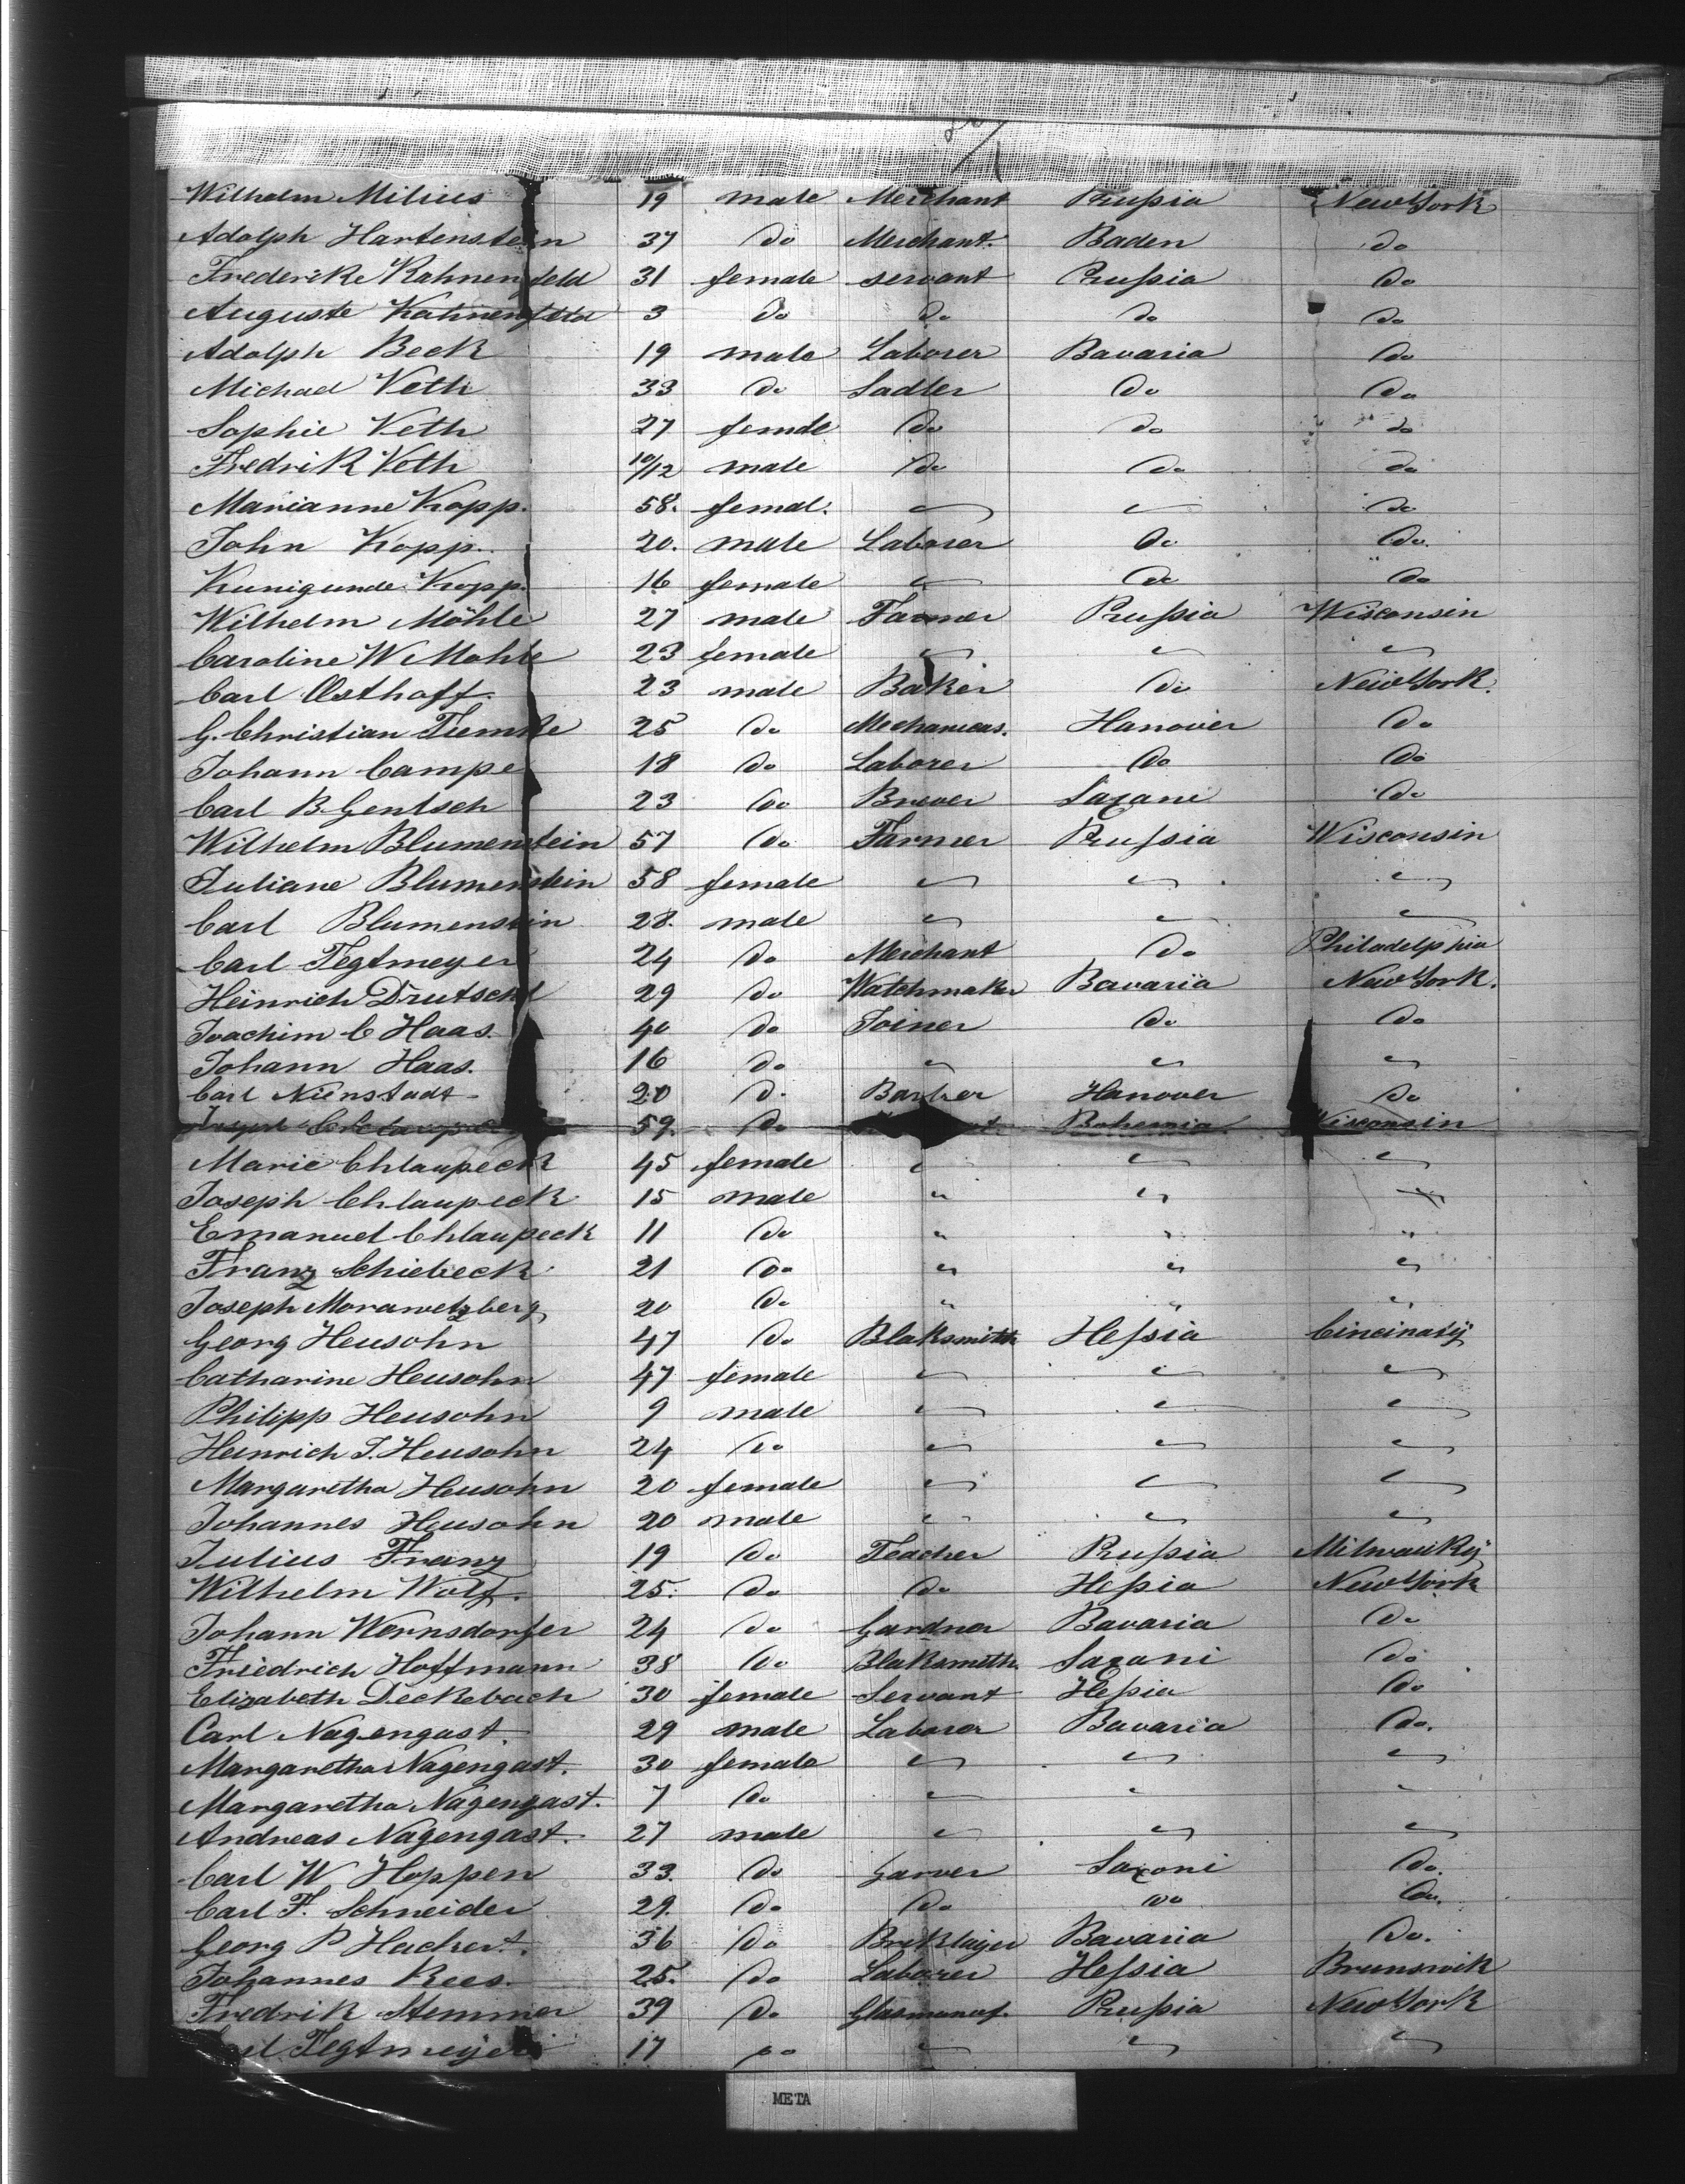 Wilhelm Milius 19 male Merchant Prussia New York
Adolph Hartenstein 37 do Merchant. Baden do
Frederike Kahnenfeld 31 female servant Prussia do
Auguste Kahnenfeld 3 do do do do
Adolph Beck 19 male Laborer Bavaria do
Michael Veth 33 do Sadler do do
Sophie Veth 27 femele do do do
Fredrik Veth 10/12 male do do do
Marianne Kopp. 58. femal. " " do
John Kopp. 20. male Laborer do do.
Kunigunde Kopp. 16 female " do do
Wilhelm Möhle 27 male Farmer Prussia Wisconsin
Caroline W Mohle 23 female " " "
Carl Osthoff. 23 male Baker do New York.
G. Christian Tiemke 25 do Mechanicus. Hanover do
Johann Campe 18 do Laborer do do
Carl B. Gentsch 23 do Brewer Saxani do
Wilhelm Blumenstein 57 do Farmer Prussia Wisconsin
Juliane Blumenstein 58 female " " "
Carl Blumenstein 28. male " " "
Carl Tegtmeyer 24 do Merchant do Philadelphia
Heinrich Drutschel 29 do Watchmaker Bavaria New York.
Joachim C Haas. 40 do Joiner do do
Johann Haas. 16 do " " "
Carl Nienstadt 20 d. Barber Hanover do
59. do Bohemia Wisconsin
Marie Chlaupeck 45 female " " "
Joseph Chlaupeck 15 male " " "
Emanuel Chlaupeck 11 do " " "
Franz Schiebeck 21 do " " "
Joseph Morawetzberg 20 do " " "
Georg Heusohn 47 do Blaksmith Hessia Cincinatÿ
Catharine Heusohn 47 female " " "
Philipp Heusohn 9 male " " "
Heinrich J. Heusohn 24 do " " "
Margaretha Heusohn 20 female " " "
Johannes Heusohn 20 male " " "
Julius Franz 19 do Teacher Prussia Milwaukÿ
Wilhelm Wolf. 25. do do Hessia New York
Johann Wernsdorfer 24 do Gardner Bavaria do
Friedrich Hoffmann 38 do Blaksmith Saxani do
Elizabeth Deckebach 30 female Servant Hessia do
Carl Nagengast. 29 male Laborer Bavaria do.
Margaretha Nagengast. 30 female " " "
Margaretha Nagengast. 7 do " " "
Andreas Nagengast. 27 male " " "
Carl W Hoppen 33. do Garver Saxoni do.
Carl F. Schneider 29. do do do do.
Georg P Hackert. 36 do Briklayer Bavaria do.
Johannes Rees. 25. do Laborer Hessia Brunswik
Fredrik Stemmer 39 do Glasmanuf. Prussia New York
Tegtmeijer 17 do " " "
META